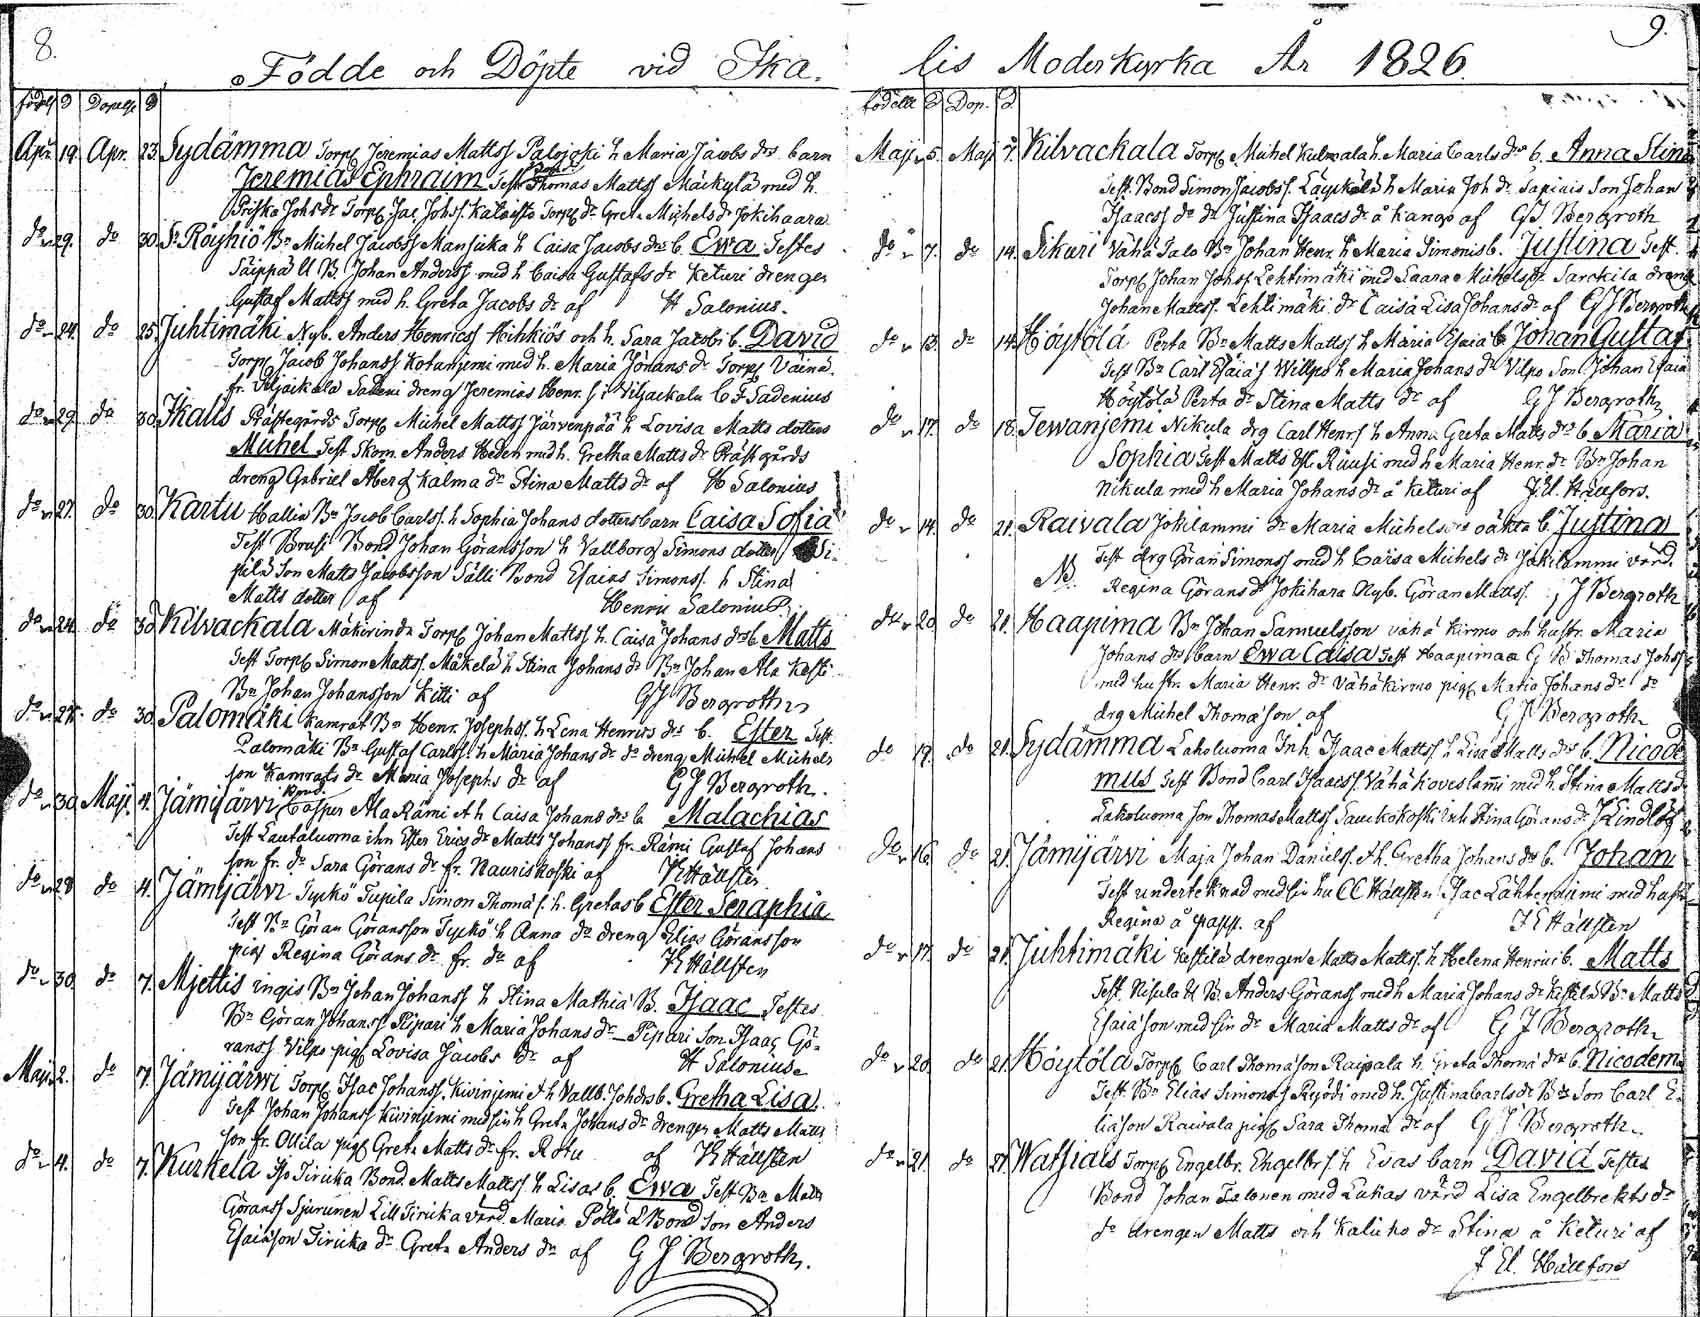 8.
Födde och Döpte vid Ika-
födelse d Dopelse d
Apr. 19. Apr. 23. Sydämma Torp. Jeremias Matts Palojoki h Maria Jacobs drs barn
Jeremias Ephraim Test. Thomas Matts Mäckylä med h.
Priska Johs dr Torp. Jac. Johs. Torp. dr Greta Michels dr Jokihaara
do 29. do 30. Röyhiö Bn Michel Jacobss Mansicka h Caisa Jacobs drs b. Ewa Testes
Säippä U B. Johan Anderss med h Caisa Gustafs dr Keturi drengen
Gustaf Matts med h. Greta Jacobs dr af H Salonius.
do 24. do 25. Juhtimäki Nyb. Anders Henrics Hihkiös och h. Sara Jacobi b. David
Torp. Jacob Johanss Kotanjemi med h. Maria Johans dr Torp.
fr. Viljackala dreng Jeremias Henr. s. i Viljackala C F Sadenius
do 29. do 30. Ikalis Prästegårds Torp. Michel Matts Järvenpää h Lovisa Matts dotters
Michel Test. Skom. Anders Heden med h. Gretha Matts dr Prästgårds
dreng Gabriel Åberg Kalma dr Stina Matts dr af H Salonius
do 27. do 30. Kartu Hallia Bn Jacob Carls. h Sophia Johans dotters barn Caisa Sofia
Test. Bond Johan Göransson h Vallborg Simons dotter Si-
pilä Son Matts Jacobsson Sälli Bond Esaias Simons. h Stina
Matts dotter af Henric Salonius
do 24. do 30 Kilvackala Mäkerinda Torp. Johan Matts h. Caisa Johans drs b. Matts
Test Torp. Simon Matts. Mäkelä h Stina Johans dr Bn Johan Ala
Bn Johan Johansson Kitti af G J Bergroth
do do 30. Palomäki Kamrat Bn Henr. Josephs. h Lena Henrics drs b. Ester Test.
Palomäki Bn Gustaf Carls. h Maria Johans dr do dreng Michel Michels
son Kamrats dr Maria Josephs dr af G J Bergroth.
do 30. Maji 4. Jämijärvi Bond. Casper Ala Rämi h Caisa Johans drs b Malachias
Test Lautaluoma Ester Erics dr Matts Johanss fr. Rämi Gustaf Johans
son fr. do Sara Görans dr fr. Nauriskoski af Hällsten
do 28 do 4. Jämijärvi Tyckö Tupila Simon Thomæ s. h. Gretas b Ester Seraphia
Test Bn Göran Göransson Tyckö h Anna do dreng Elias Göransson
pig Regina Görans dr fr. do af Hällsten
do 30. do 7. Mjettis ingis Bn Johan Johanss h Stina Mathiæ B. Isaac Testes
Bn Göran Johanss Pipari h Maria Johans dr Pipari Son Isaac Gö-
ranss. Vilpo pig Lovisa Jacobs dr af H Salonius
Maji 2. do 7. Jämijärvi Torp. Isac Johanss. Kivinjemi h Vallb. Joh drs b. Gretha Lisa
Test Johan Johanss Kivinjemi med sin h Greta Johans dr drengen Matts Matts
son fr. Ollila pig Greta Matts dr fr. af Hällsten
do 4. do 7. Kurkela Iso Tiricka Bond. Matts Matts h Lisas b. Ewa Test Bn Matts
Görans Sjurunen Lill Tiricka värd. Maria Pöllö Bond Son Anders
Esaiæson Tiricka dr Greta Anders dr af G J Bergroth.
9.
lis Moderkyrka År 1826.
födelse d Dop. d
Maji 5. Maji 7. Kilvackala Torp. Michel h. Maria Carls drs b. Anna Stina
Test. Bond Simon Jacobs. h Maria Joh dr Son Johan
Isaacs do dr Justina Isaacs dr å Kango af G J Bergroth
do 7. do 14. Sikuri Vähä Talo Bn Johan Henr. h Maria Simonis b. Justina Test.
Torp. Johan Johs Lehtimäki med Saara Michels dr Särckilä dreng
Johan Matts. Lehtimäki dr Caisa Lisa Johans dr af G J Bergroth
do 13. do 14. Höytölä Perta Bn Matts Matts h Maria Esaiæ b Johan Gustaf
Test Bn Carl Esaiæ s Willpo h Maria Johans dr Vilpo Son Johan Esaiæ
Höytölä Perta dr Stina Matts dr af G J Bergroth
do 17. do 18. Tewanjemi Nikula drg Carl Henrs h Anna Greta Matts drs b Maria
Sophia Test Matts Ruusi med h Maria Henr. dr Bn Johan
Nikula med h Maria Johans dr å Keturi af Hällfors.
do 14. do 21. Raivala Jokilammi dr Maria Michels oäkta b. Justina
Test drg Göran Simonss med h Caisa Michels dr Jokilammi värd.
NB Regina Görans dr Jokihara Nyb. Göran Matts. J Bergroth
do 20 do 21. Haapima Bn Johan Samuelsson vähä Kirmo och hustr. Maria
Johans drs barn Ewa Caisa Test Haapimaa G B Thomas Johs
med hustr. Maria Henr. dr Vähä kirmo pig. Maria Johans dr do
drg Michel Thomæson af G J Bergroth
do 19. do 21. Sydämma Laholuoma Inh Isaac Matts. h Lisa Matts drs b. Nicode
mus Test Bond Carl Isaacs. Vähä Koveslami med h. Stina Matts dr
Laholuoma Son Thomas Matts Inh Stina Görans dr J Lindlöf
do 16. do 21. Jämijärvi Maja Johan Daniels. h. Gretha Johans drs b. Johan
Test undertecknad med sin hu C C Hällsten Isac Lähteenjemi med hustr
Regina å af Hällsten
do 17. do 21. Juhtimäki Kestilä drengen Matts Matts. h Helena Henrici b. Matts
Test. Nisula U Bn Anders Görans med h Maria Johans dr Kestilä Bn Matts
Esaiæson med sin dr Maria Matts dr af G J Bergroth
do 20. do 21. Höytölä Torp. Carl Thomæson Raipala h. Greta Thomæ drs b. Nicodem
Test. Bn Elias Simons med h. Justina Carls dr Bn Son Carl E-
liæson Raivala pig Sara Thomæ dr af G J Bergroth
do 21. do 21. Watsials Torp. Engelbr. Engelbr s. h Evas barn David Testes
Bond Johan Talonen med Lukas värd Lisa Engelbrekts dr
do drengen Matts och Kalicko dr Stina å Keturi af
Hällfors